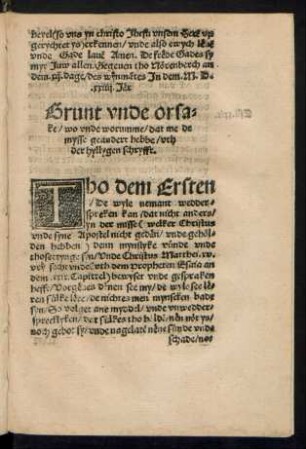 dorch uns yn christo Jhesu unsen
gerychtet yo erkennen / vnde also ewych
vnde Gade lauē Amen. De frede Gades sy
myt Juw allen. Gegeuen tho Nörenberch an
dem .dage / des wynmātes In dem .M. D.
.xxiiij. Jar
Grunt vnde orsa-
ke / wo vnde worumme / dat me de
mysse geandert hebbe / vth
der hyllygen schryfft.
Tho dem Ersten
/ De wyle nemant wedder-
spreken kan / dat nicht anders
yn der misse / welker Christus
vnde syne Apostel nicht gedān / vnde geholden
hebben / denn mynslyke vünde vnde
thosettynge syn / Vnde Christus Matthei. xv.
vth dem Propheten Esaia an
dem .xxix. Capittel / bewyset vnde gesproken
hefft / Vorgeues dēnen see my / de wyle see lē-
ren sülke lēre / de nichtes men mynscken bade
syn / So volget ane myddel / vnde vnwedder-
sprecklyken / der sülkes tho holdē / nēn nöt ys /
noch gebot sy / vnde nagelatē nēne sünde vnde
schade / no-